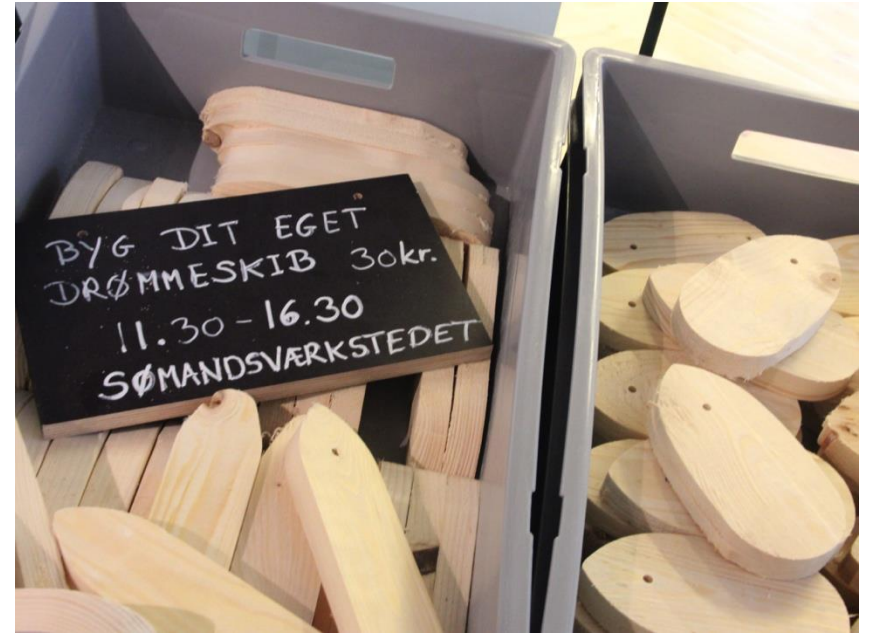 BYG DIT EGET
DRØMMESKIB 30kr.
11.30-16.30
SØMANDSVÆRKSTEDET